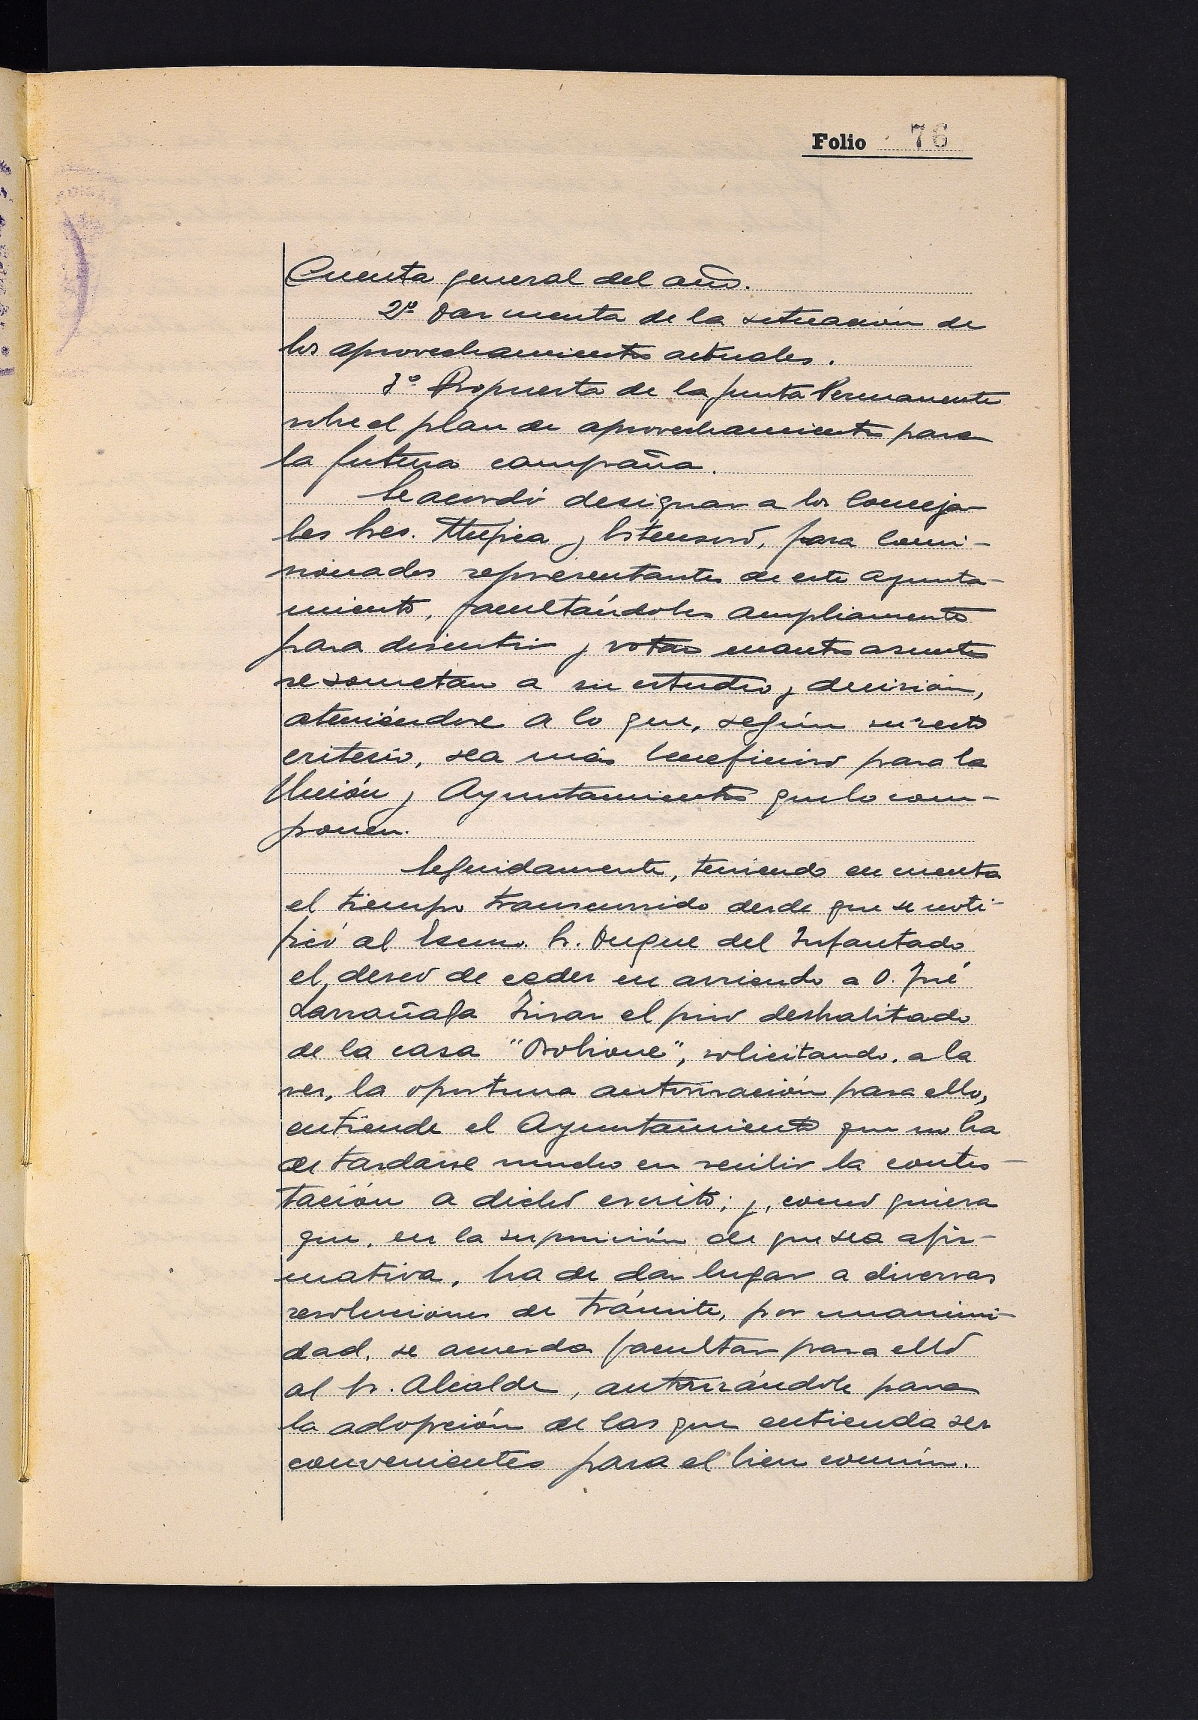 Folio 76
Cuenta general del año.
2º Dar cuenta de la situación de
los aprovechamientos actuales.
3º Propuesta de la Junta Permanente
sobre el plan de aprovechamientos para
la futura campaña.
Se acordó designar a los Conceja-
les Sres. Mujica y Ostensoro, para Comi-
sionados representantes de este Ayunta-
miento, facultándoles ampliamente
para discutir y votar cuantos asuntos
se sometan a su estudio y decisión,
ateniéndose a lo que, según su recto
criterio, sea más beneficioso para la
Unión y Ayuntamientos que lo com-
ponen.
Seguidamente, teniendo en cuenta
el tiempo transcurrido desde que se noti-
ficó al Excmo. Sr. Duque del Infantado
el deseo de ceder en arriendo a D. José
Larrañaga el piso deshabitado
de la casa , solicitando, a la
vez, la oportuna autorización para ello,
entiende el Ayuntamiento que no ha
de tardarse mucho en recibir la contes-
tación a dicho escrito; y, como quiera
que, en la suposición de que sea afir-
mativa, ha de dar lugar a diversas
resoluciones de trámite, por unanimi-
dad, se acuerda facultar para ello
al Sr. Alcalde, autorizándole para
la adopción de las que entienda ser
convenientes para el bien común.